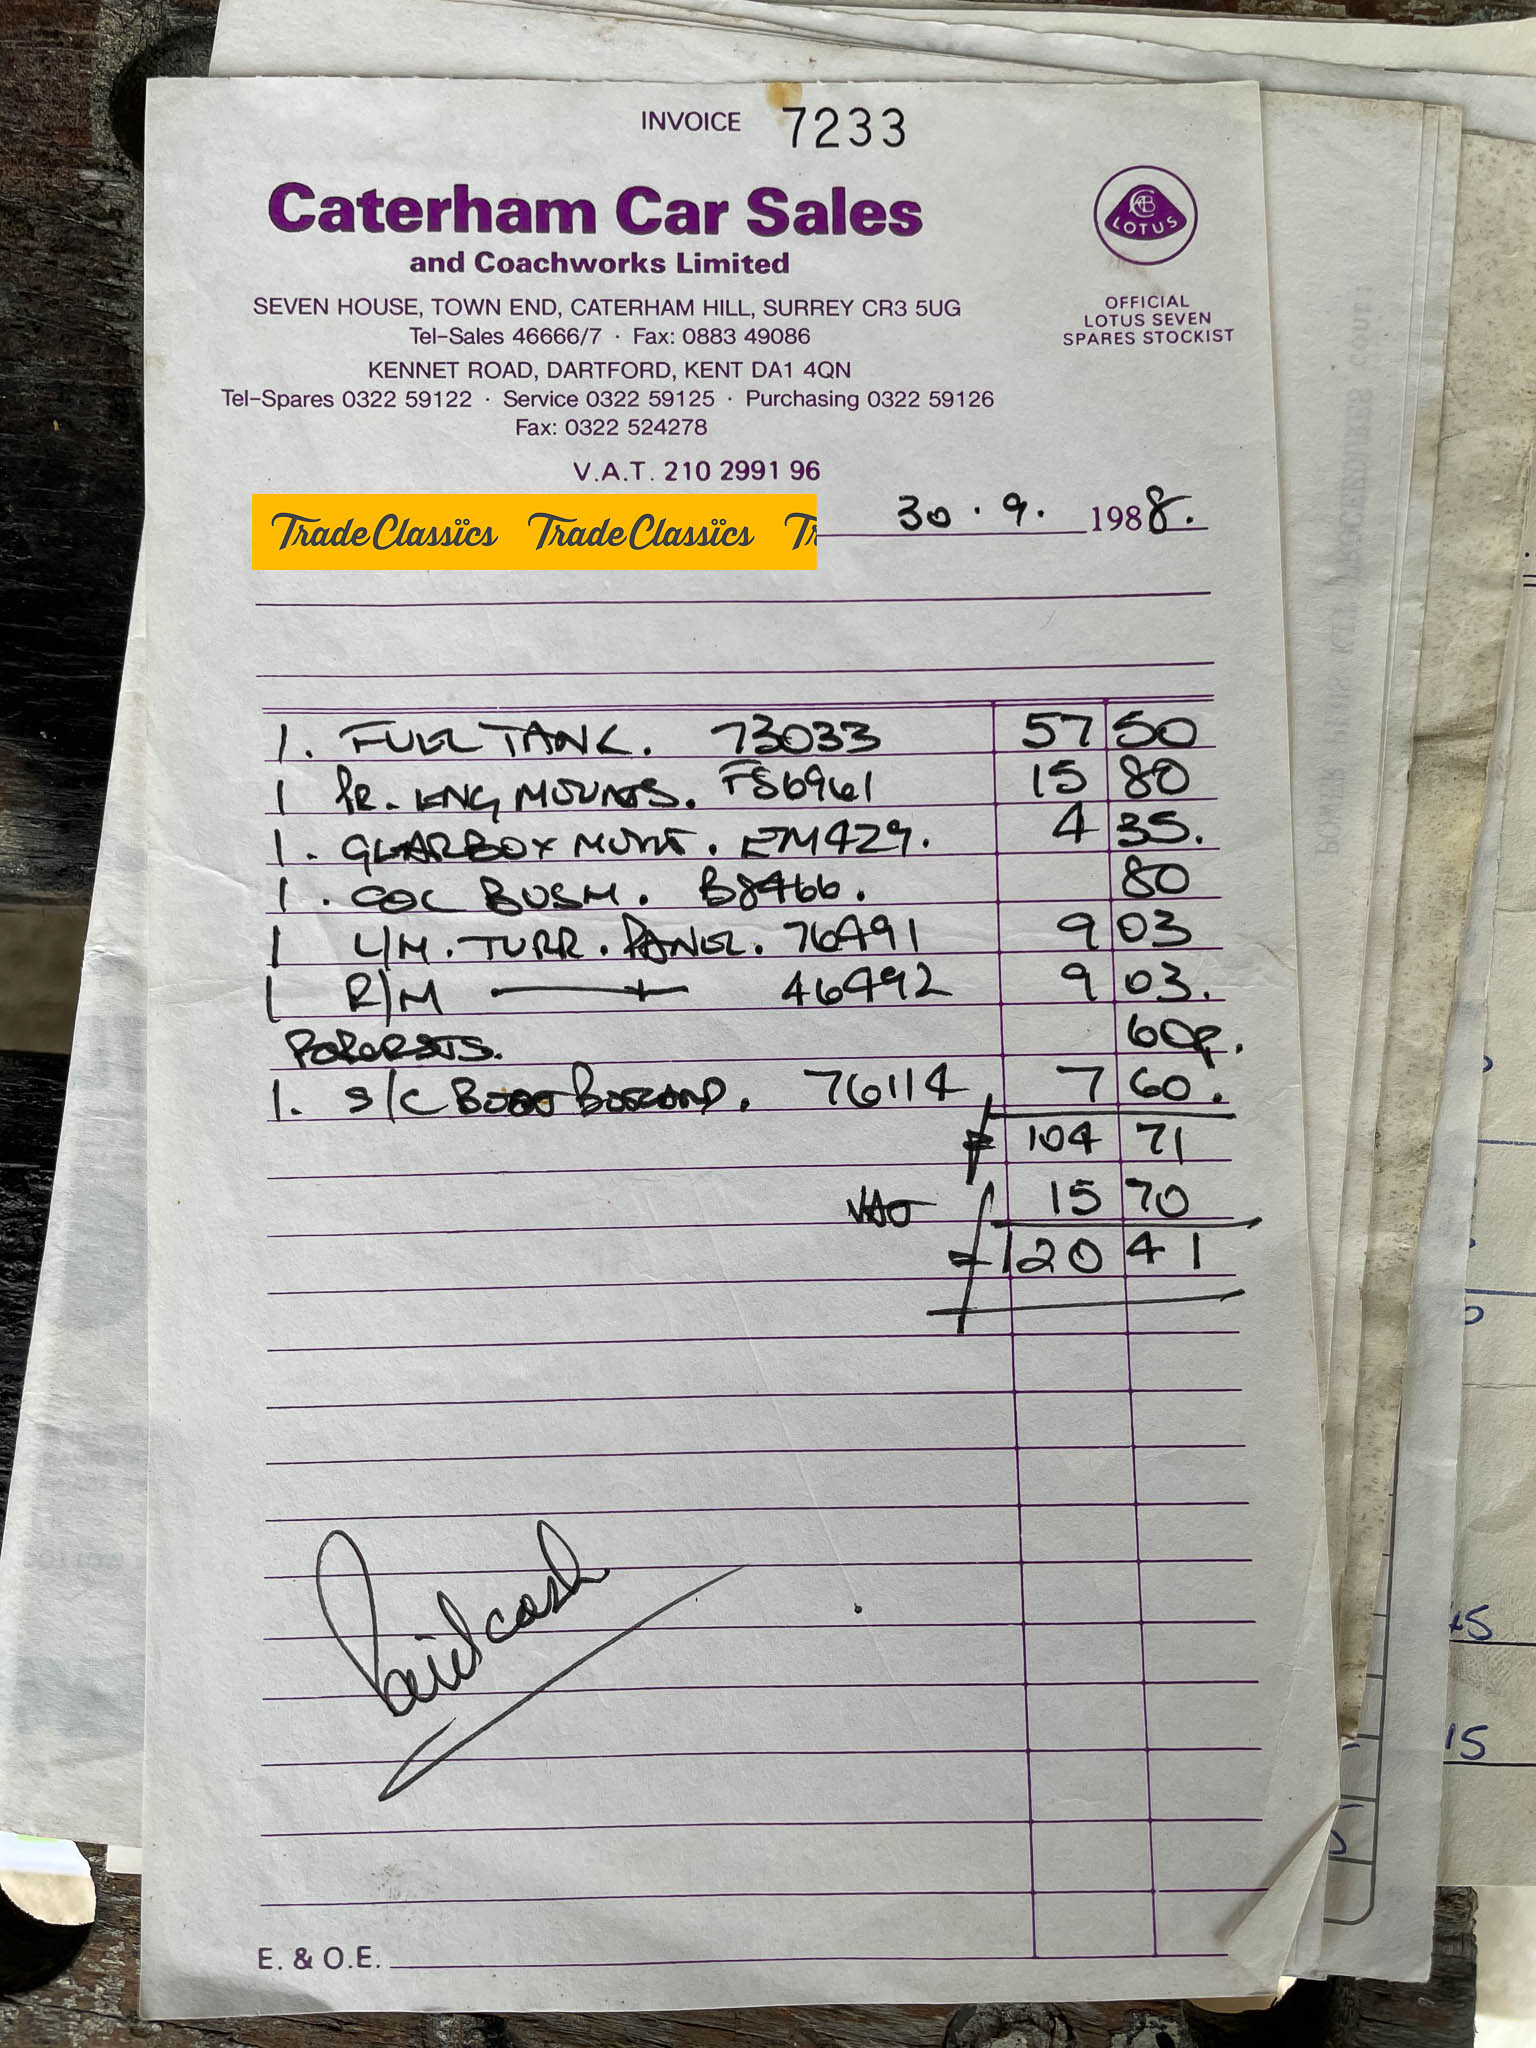 INVOICE 7233
Caterham Car Sales
and Coachworks Limited
SEVEN HOUSE, TOWN END, CATERHAM HILL, SURREY CR3 5UG
Tel-Sales 46666/7 · Fax: 0883 49086
KENNET ROAD, DARTFORD, KENT DA1 4QN
Tel-Spares 0322 59122 · Service 0322 59125 · Purchasing 0322 59126
Fax: 0322 524278
V.A.T. 210 2991 96
LOTUS
OFFICIAL
LOTUS SEVEN
SPARES STOCKIST
Trade Classics Trade Classics Tr
30.9. 1988.
1. FUEL TANK. 73033 57 50
1 PR. ENG MOUNTS. FS6961 15 80
1. GEARBOX MOUNT. EM429. 4 35.
1. BUSH. B8466. 80
1 L/H. TURR. PANEL. 76491 9 03
1 R/H 46492 9 03.
60p.
1. S/C 76114 7 60.
104 71
VAT 15 70
120 41
Paid cash
E. & O.E.
45
15